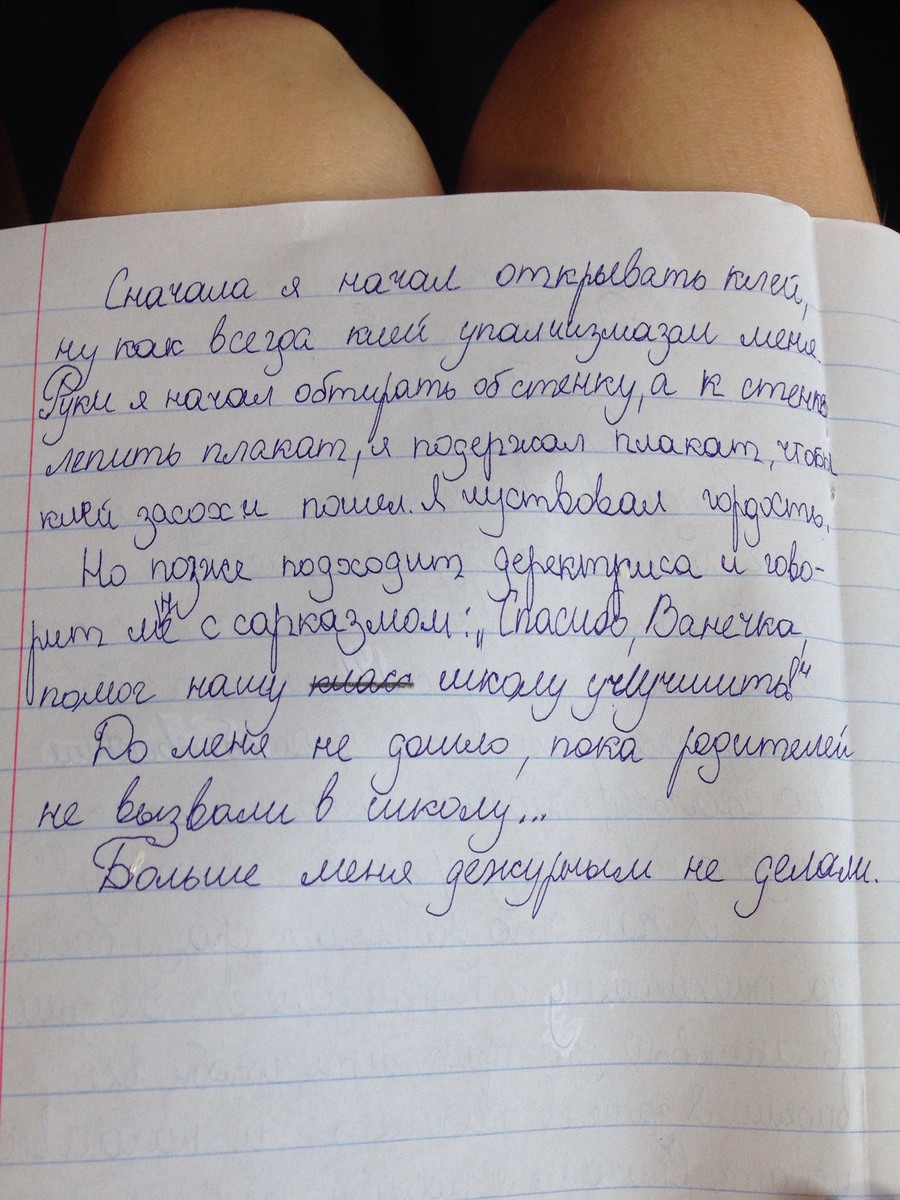 Сначала я начал открывать клей,
ну как всегда клей упал и измазал меня.
Руки я начал обтирать об стенку, а к стенке
лепить плакат, я подержал плакат, чтобы
клей засох и пошел. Я чуствовал гордость.
Но позже подходит деректриса и гово-
рит мне с сарказмом: „Спасибо, Ванечка,
помог нашу класс школу улучшить!“
До меня не дошло, пока родителей
не вызвали в школу...
Больше меня дежурным не делали.